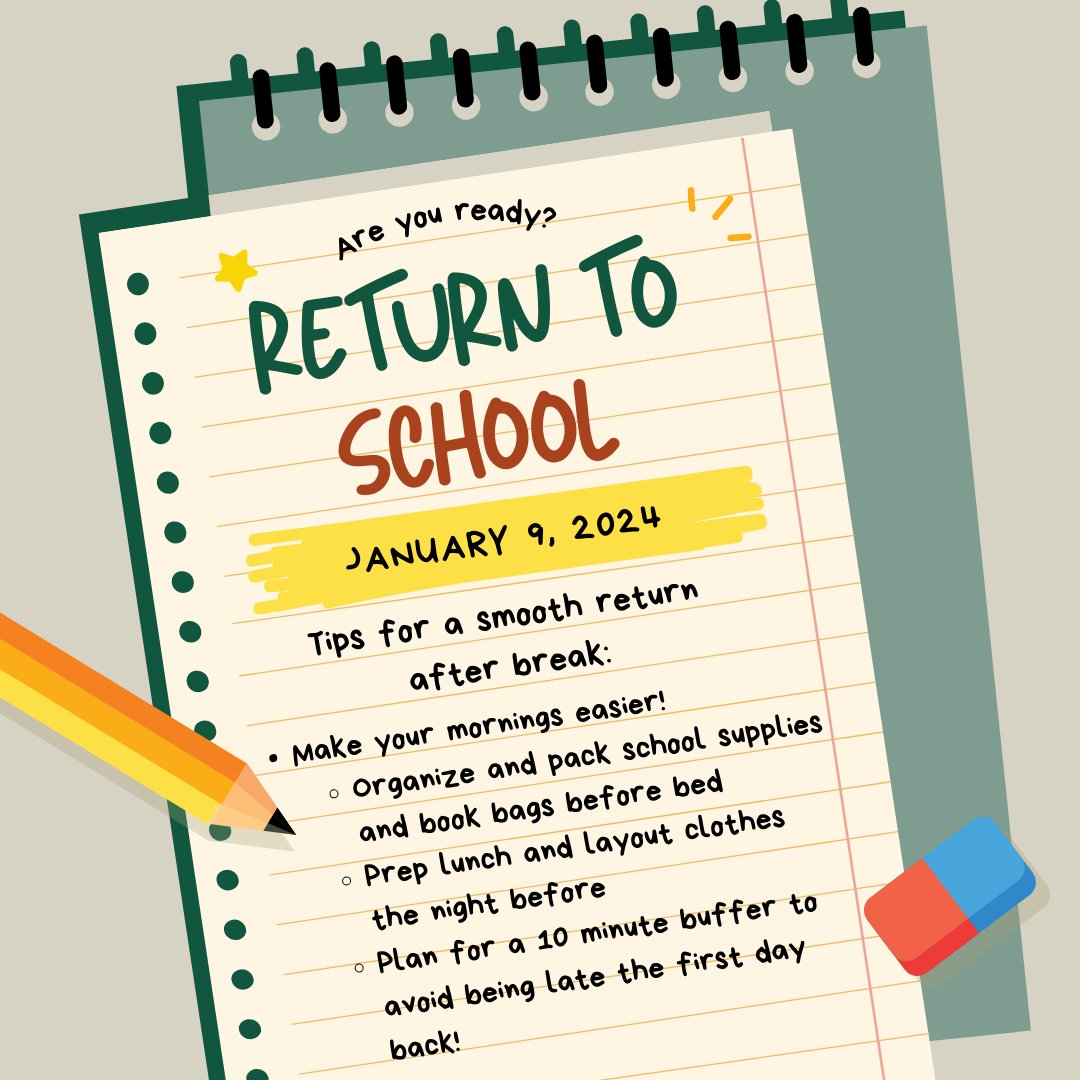 Are you ready?
RETURN TO
SCHOOL
JANUARY 9, 2024
Tips for a smooth return
after break:
• Make your mornings easier!
○ Organize and pack school supplies
and book bags before bed
○ Prep lunch and layout clothes
the night before
○ Plan for a 10 minute buffer to
avoid being late the first day
back!